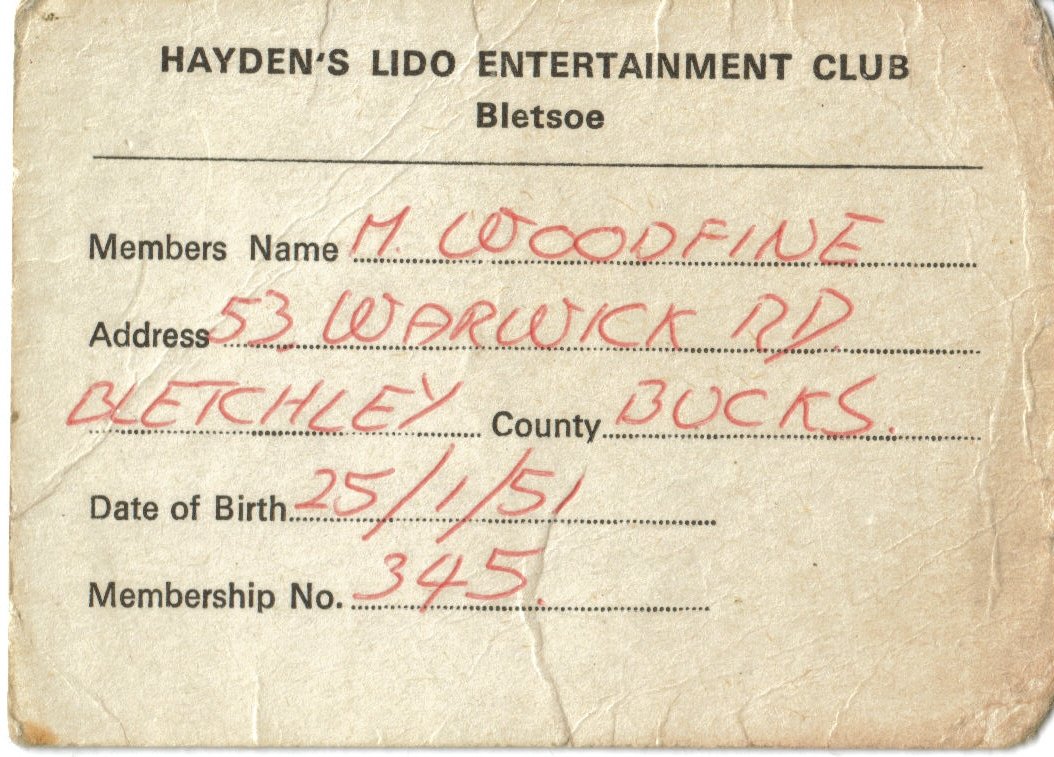 HAYDEN'S LIDO ENTERTAINMENT CLUB
Bletsoe
Members Name M. WOODFINE
Address 53, WARWICK RD.
BLETCHLEY County BUCKS.
Date of Birth 25/1/51
Membership No. 345.